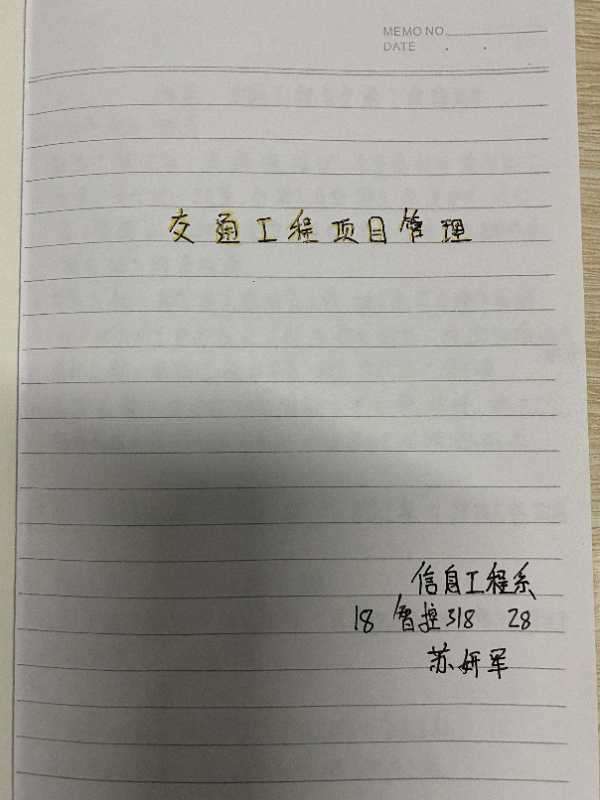 MEMO NO.
DATE . .
交通工程项目管理
信息工程系
18 智控318 28
苏妍军